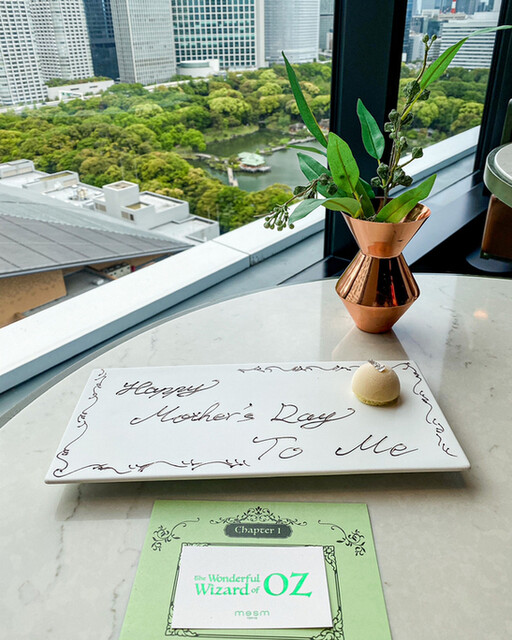 Happy
Mother's Day
To Me
Chapter 1
The Wonderful
Wizard of OZ
mesm
TOKYO